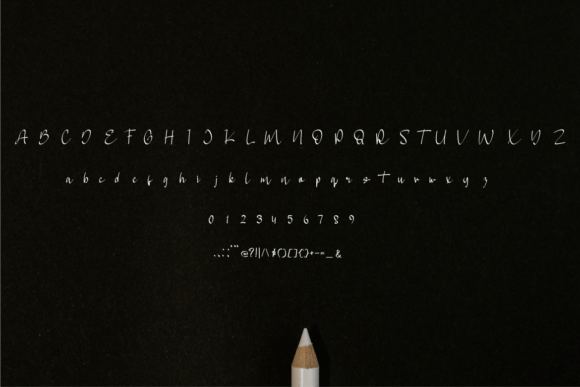 A B C D E F G H I J K L M N O P Q R S T U V W X Y Z
a b c d e f g h i j k l m n o p q r s t u v w x y z
0 1 2 3 4 5 6 7 8 9
.,:;'"“@?!|/\#()[]{}+-=_&